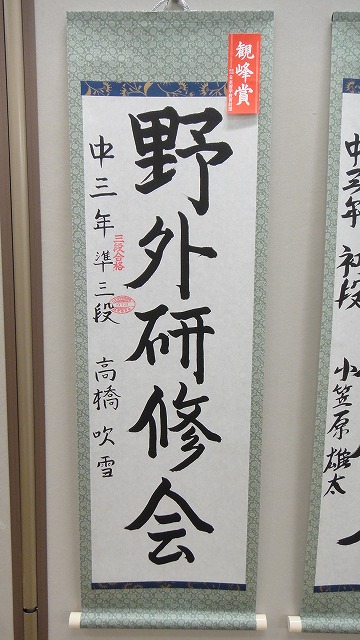 観峰賞
野外研修会
中三年 準三段 高橋吹雪
三段合格
中三年 初段 小笠原雄太